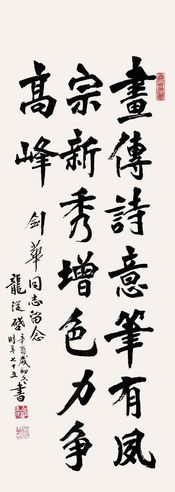 畫傳詩意筆有風
宗新秀增色力爭
高峰
劍華同志留念
辛酉歲初六
時年七十五
龍從啓書